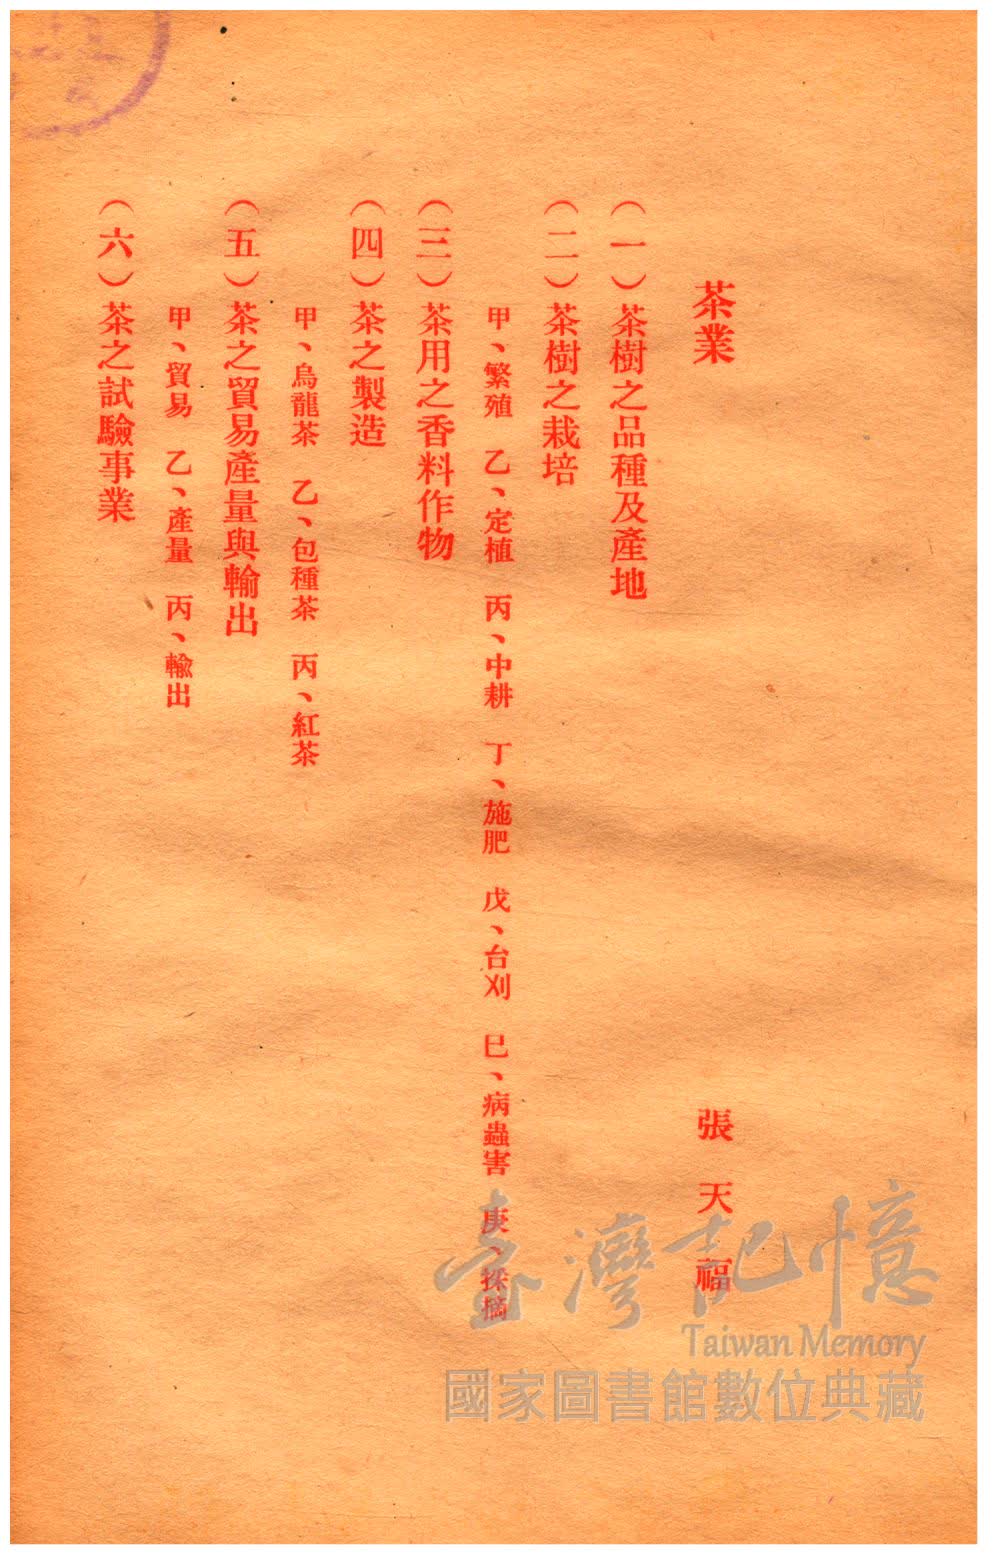 茶業　張天福
（一）茶樹之品種及產地
（二）茶樹之栽培
甲、繁殖　乙、定植　丙、中耕　丁、施肥　戊、台刈　巳、病蟲害　庚、採摘
（三）茶用之香料作物
（四）茶之製造
甲、烏龍茶　乙、包種茶　丙、紅茶
（五）茶之貿易產量與輸出
甲、貿易　乙、產量　丙、輸出
（六）茶之試驗事業
臺灣記憶
Taiwan Memory
國家圖書館數位典藏